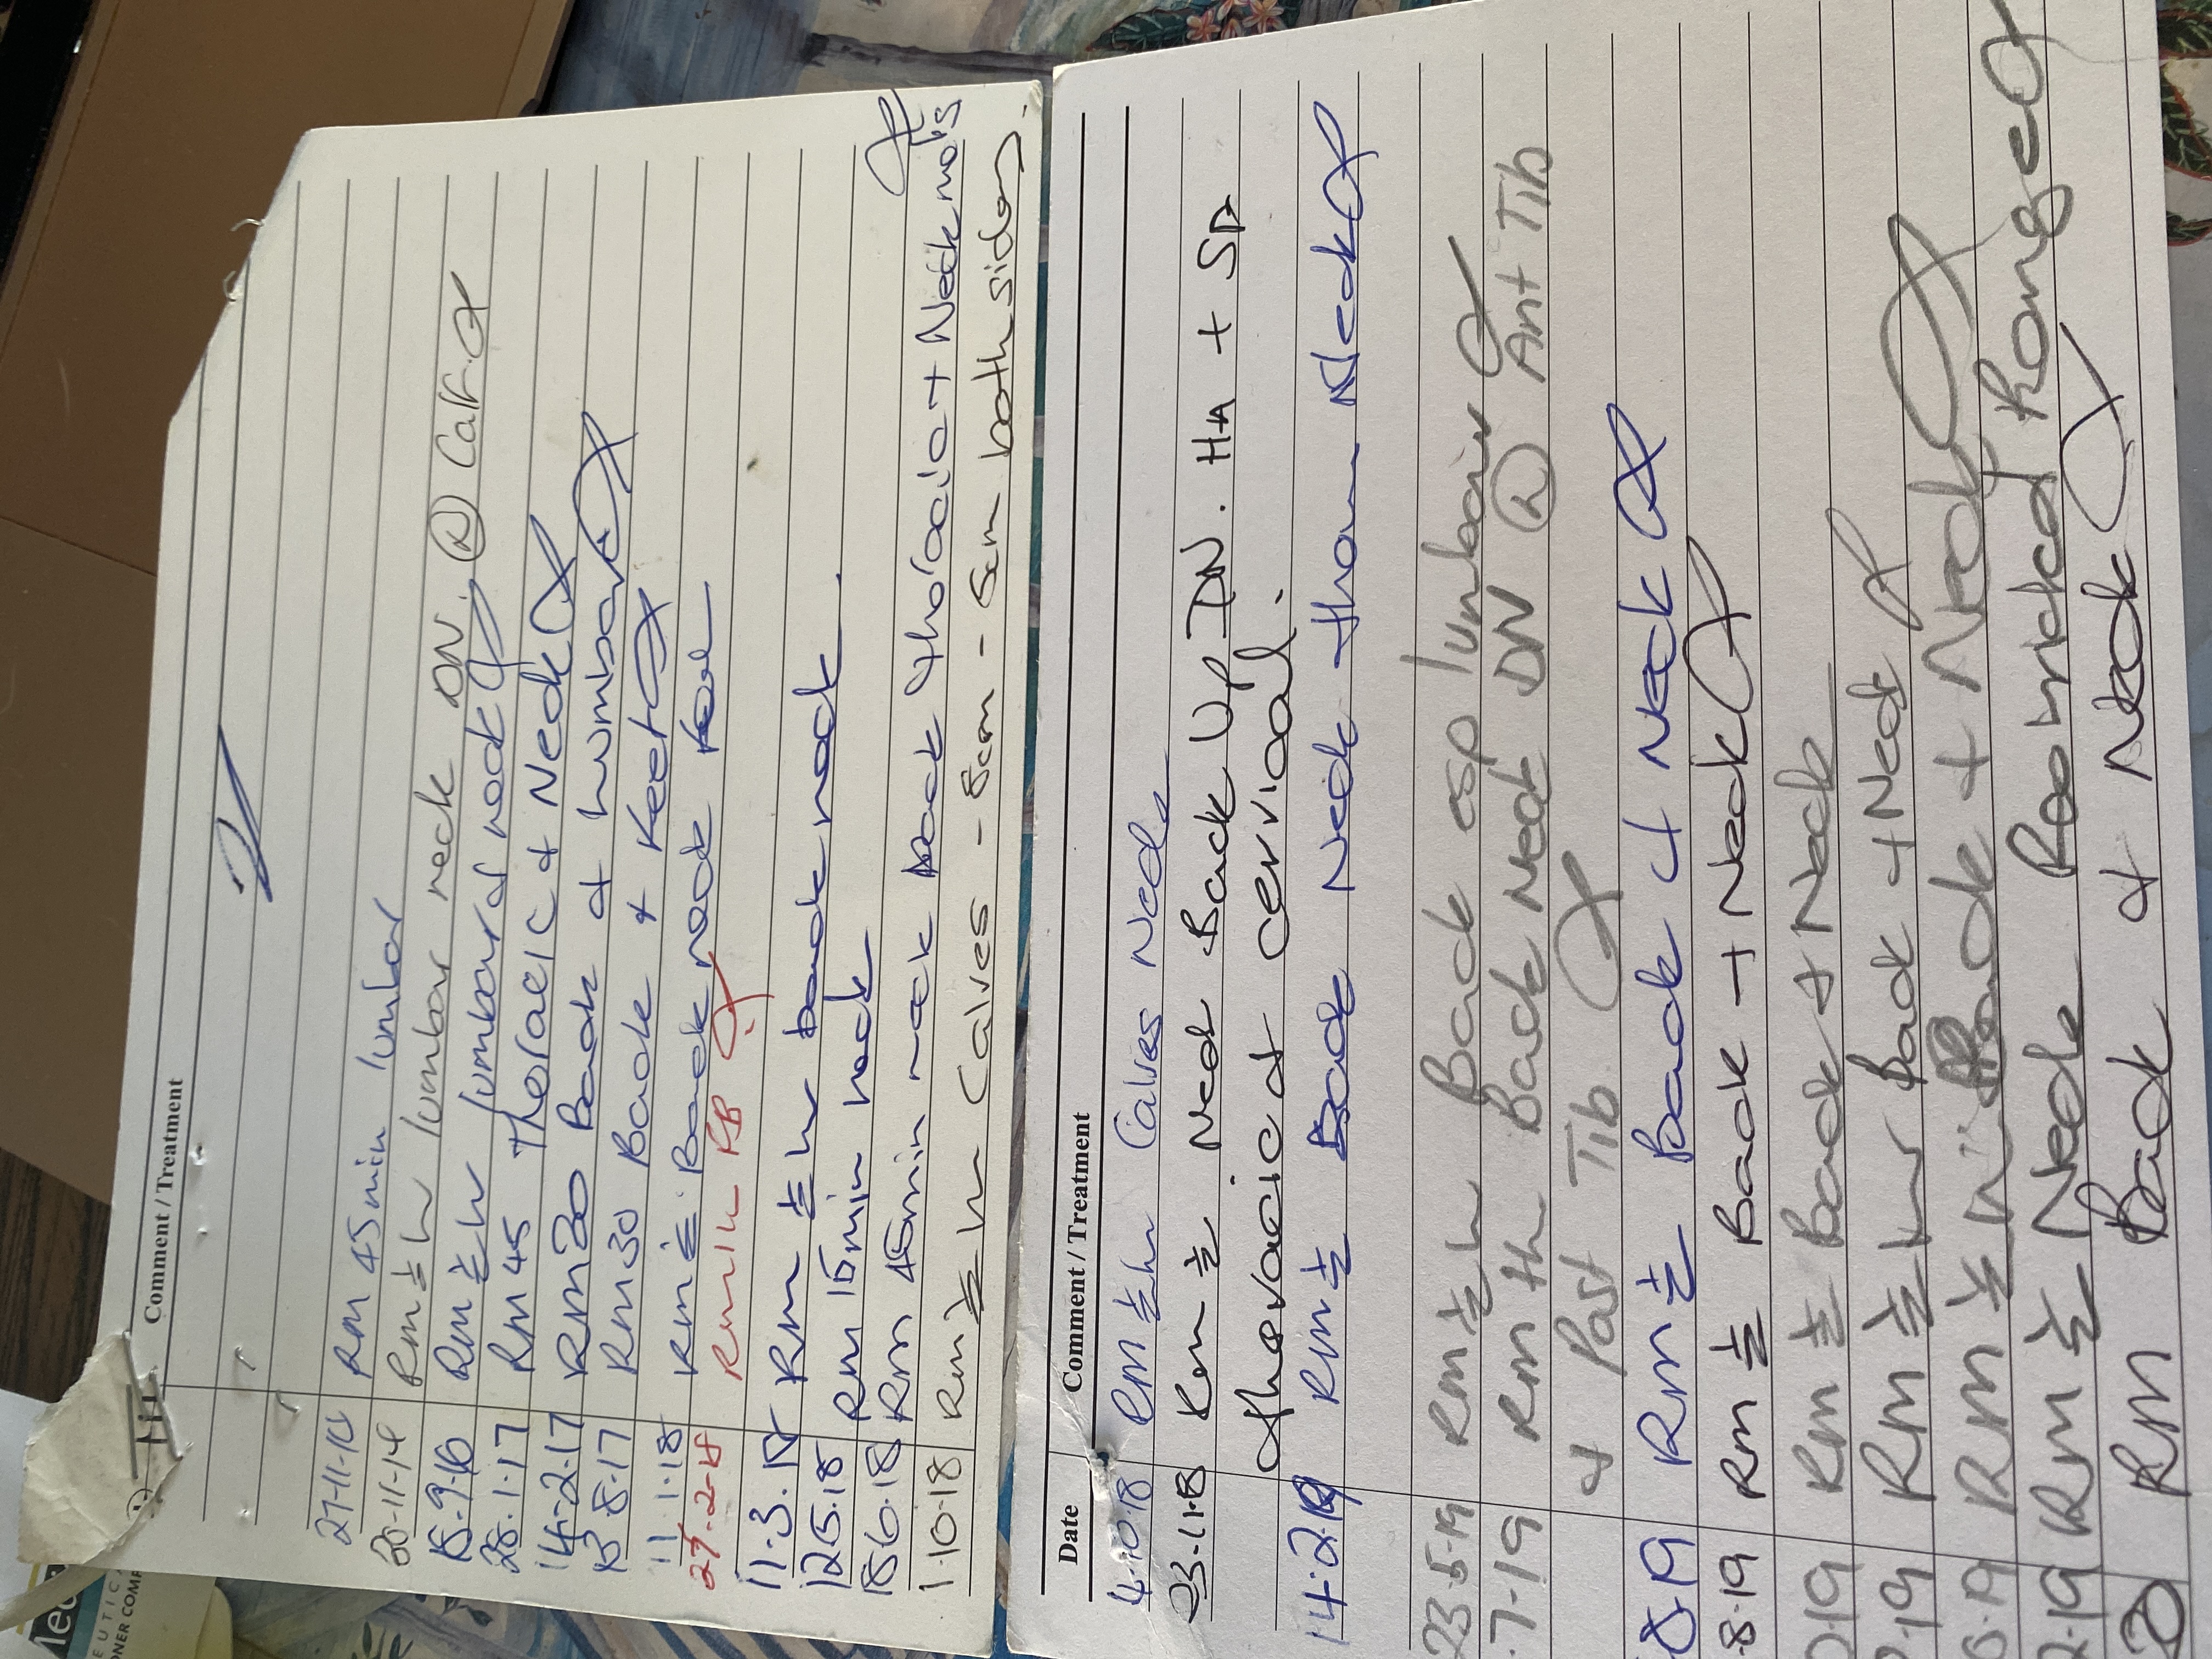 Comment / Treatment
27-11-14 Rm 45min lumbar
20-11-14 Rm ½ hr lumbar neck DN. (R) Calf.
15.9.16 Rm ½ hr lumbar & neck
28.1.17 Rm 45 Thoracic & Neck
14.2.17 Rm 30 Back & Lumbar
13.8.17 Rm 30 Back & Neck
11.1.18 Rm ½ Back neck
27.2.18 Rm 1h FB
11.3.18 Rm ½ hr back neck
12.5.18 Rm 15min neck.
18.6.18 Rm 45min neck back thoracic + Neck mo's
1.10.18 Rm ½ hr Calves - 8cm - 5cm both sides.
Date Comment / Treatment
4.10.18 Rm ½ hr Calves Neck
23.11.18 Rm ½ Neck Back Up DN. H+A + SP
thoracic & cervical.
14.2.19 Rm ½ Back Neck thom Neck
23.5.19 Rm ½ h Back esp lumbar
.7.19 Rm ½h Back Neck DN (R) Ant Tib
& Post Tib.
8.19 Rm ½ Back & Neck
.8.19 Rm ½ Back + Neck
19 Rm ½ Back & Neck
.19 Rm ½ hr Back + Neck
.19 Rm ½ hr Back + Neck
2.19 Rm ½ Neck Restricted Range
20 Rm Back & Neck